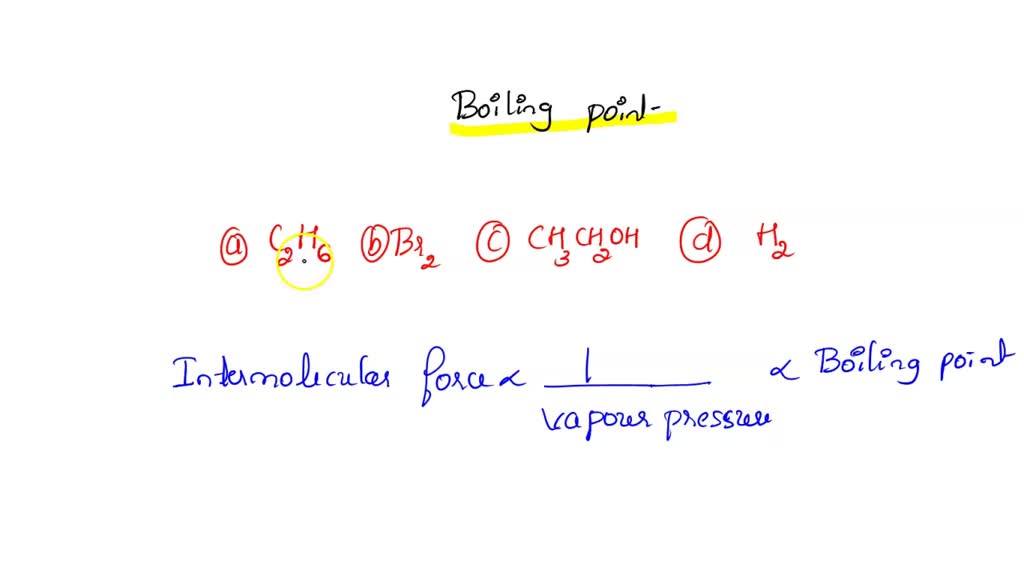 Boiling point
ⓐ C₂H₆ ⓑ Br₂ ⓒ CH₃CH₂OH ⓓ H₂
Intermolecular force ∝ 1 / vapour pressure ∝ Boiling point